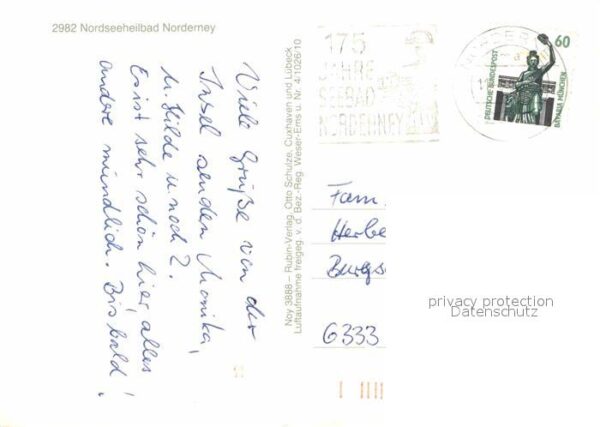 2982 Nordseeheilbad Norderney
Viele Grüße von der
Insel senden Monika,
u. Hilde u. noch 2.
Es ist sehr schön hier, alles
andere mündlich. Bis bald!
Noy 3888 – Rubin-Verlag, Otto Schulze, Cuxhaven und Lübeck
Luftaufnahme freigeg. v. d. Bez.-Reg. Weser-Ems u. Nr. 4/1026/10
175
JAHRE
SEEBAD
NORDERNEY
60
DEUTSCHE BUNDESPOST
BAVARIA MÜNCHEN
Fam.
Herbe
Burgs
6333
privacy protection
Datenschutz